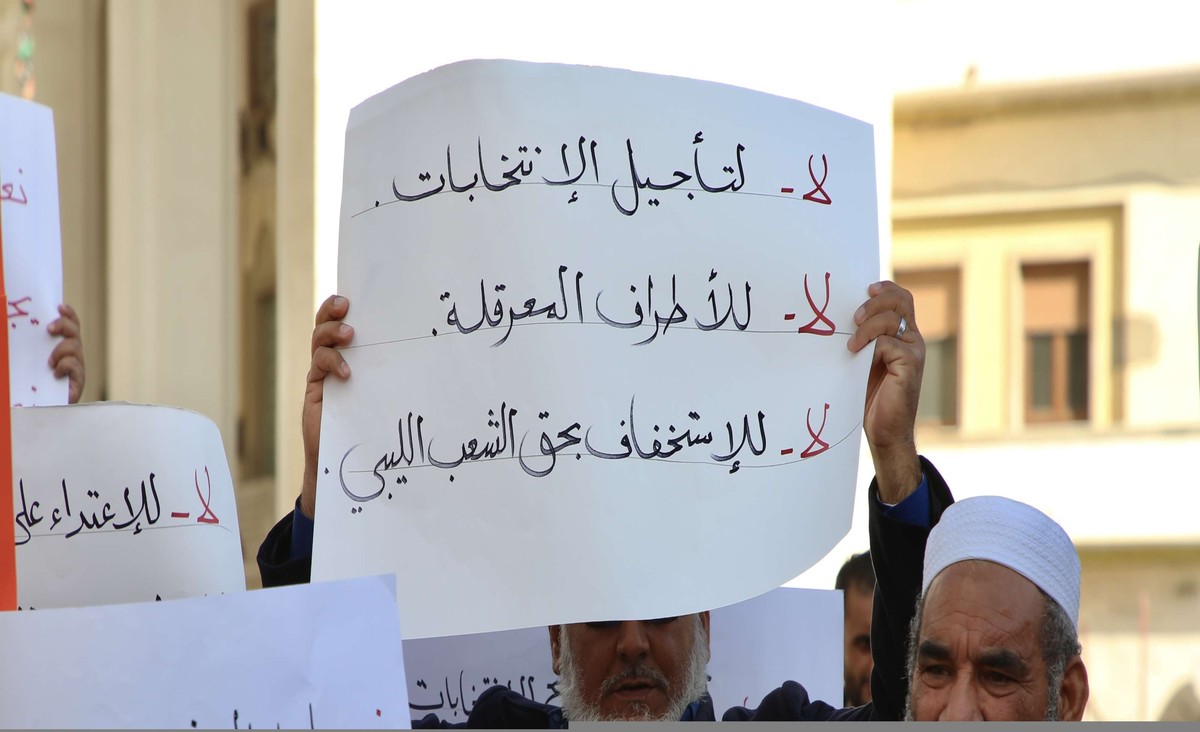 لا - لتأجيل الإنتخابات.
لا - للأطراف المعرقلة.
لا - للإستخفاف بحق الشعب الليبي.
لا - للإعتداء على
الإنتخابات